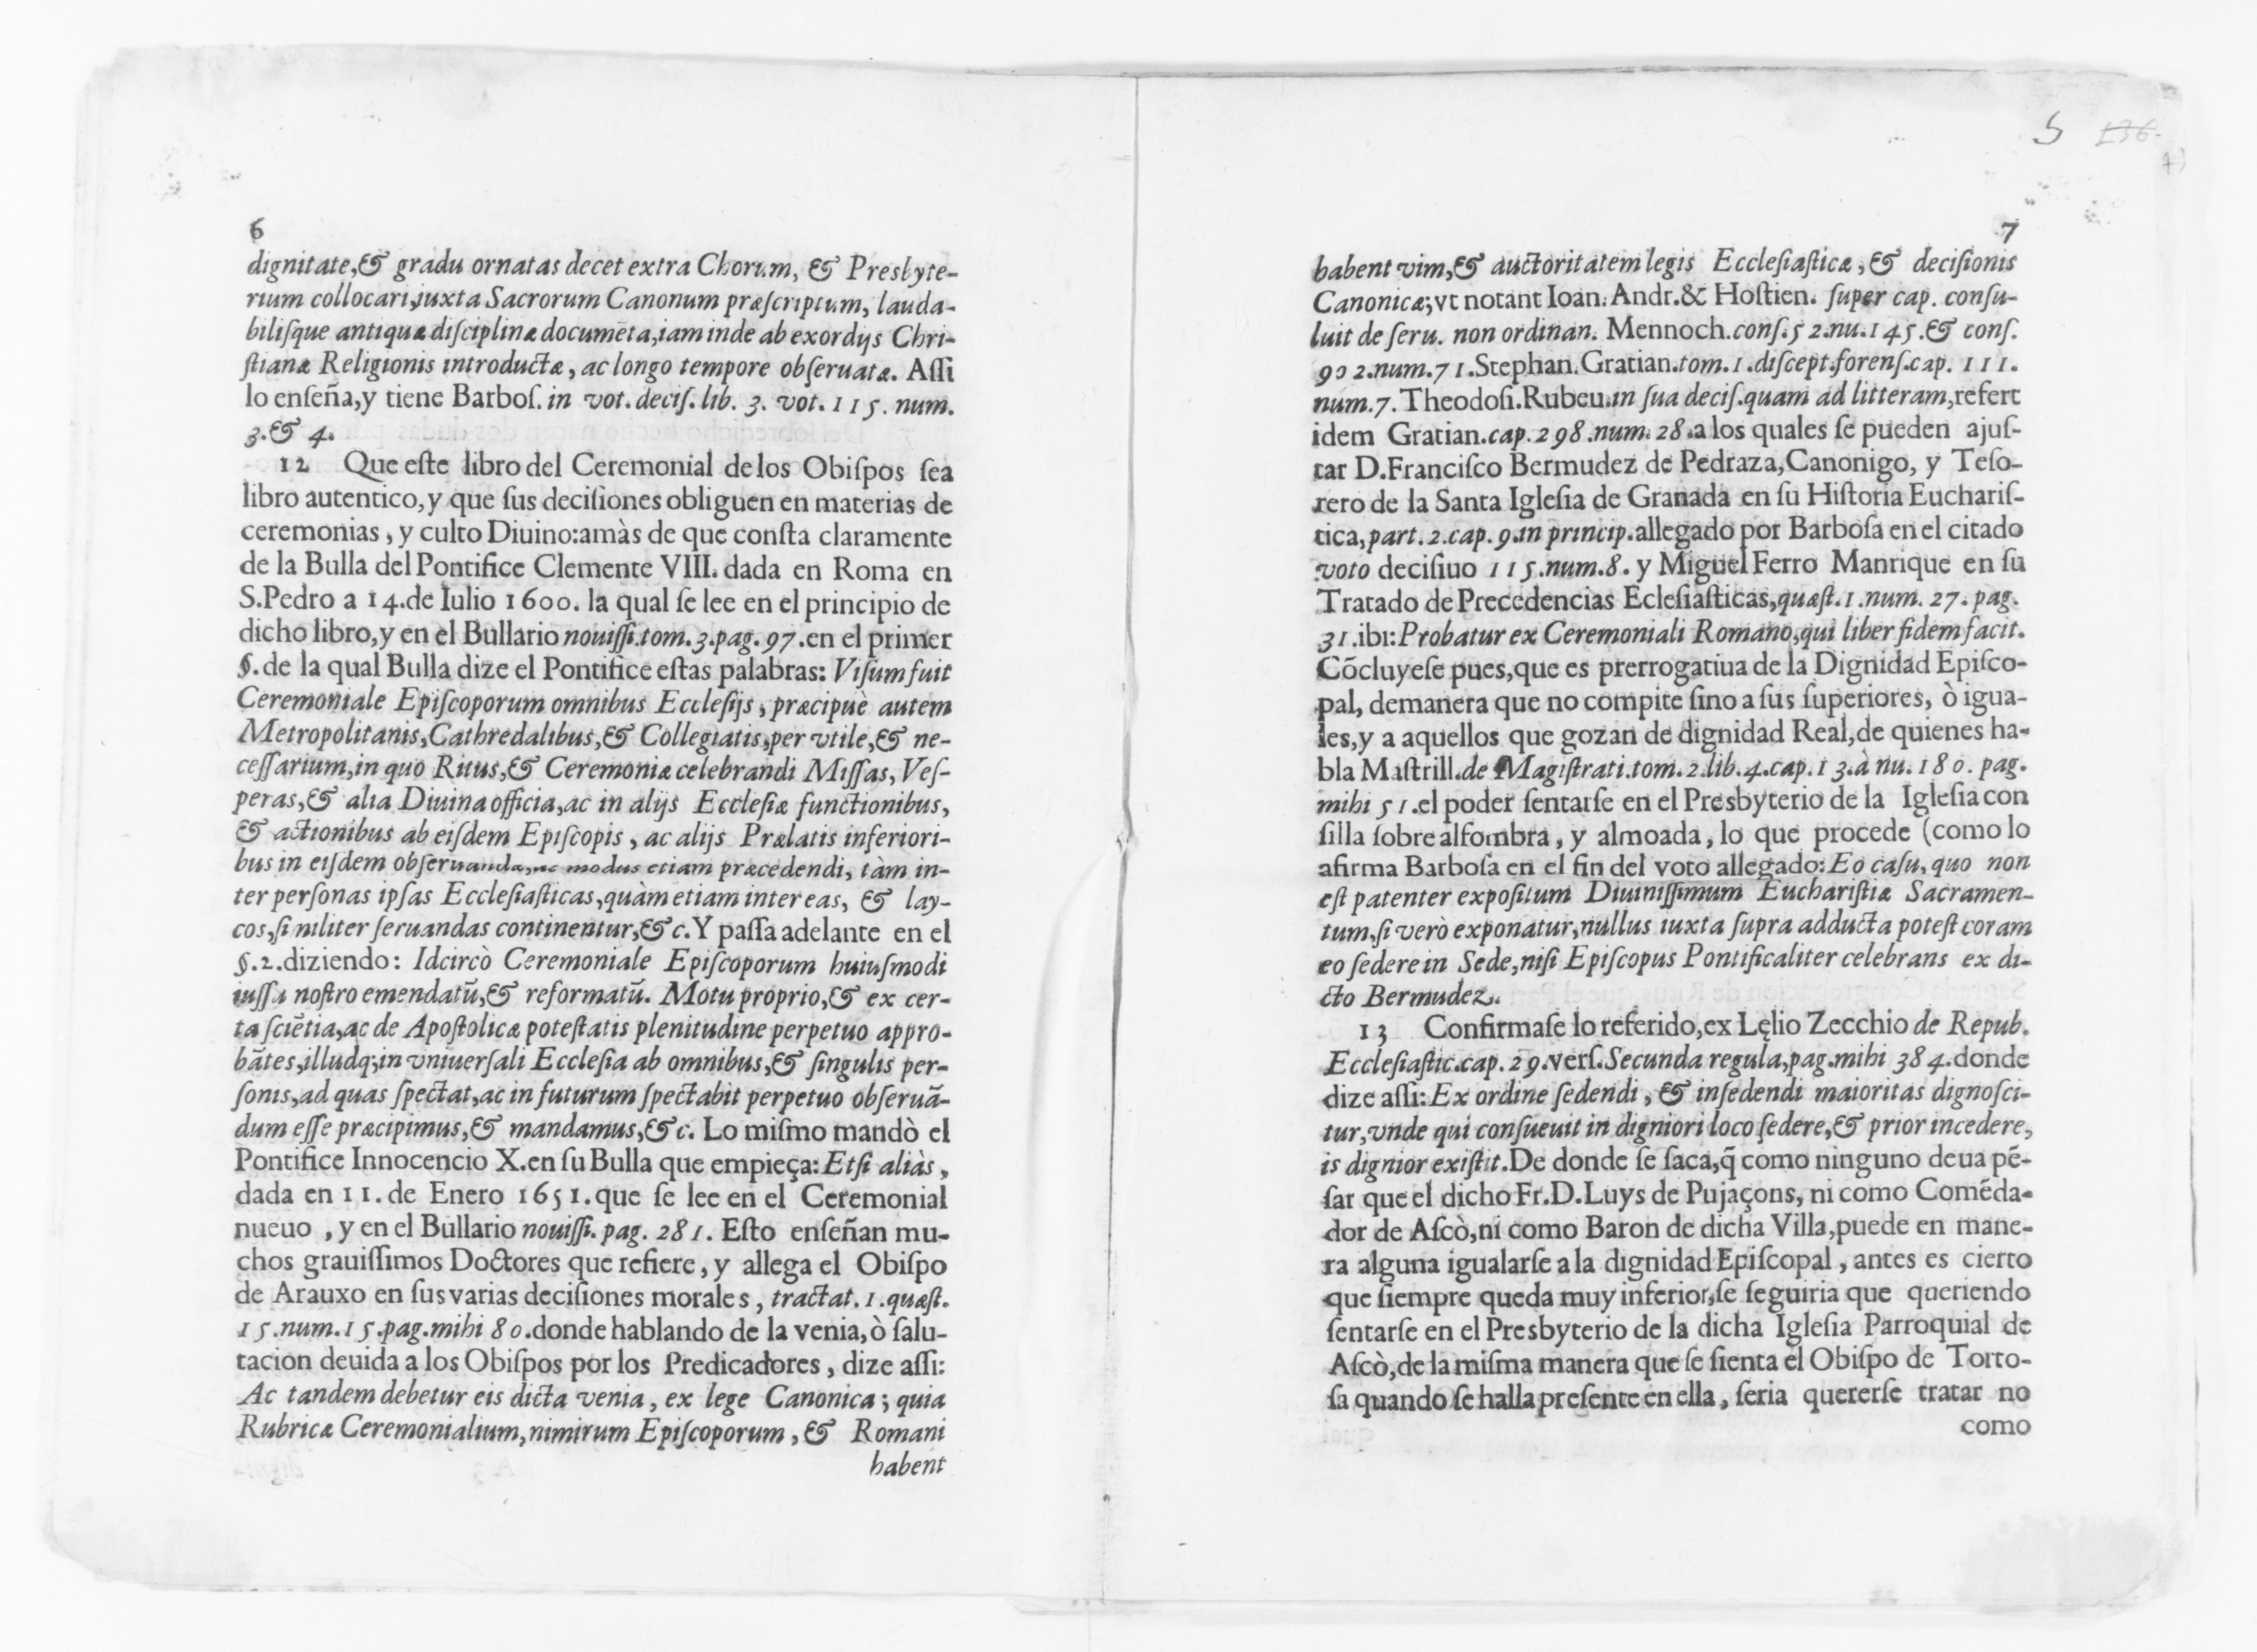 6
dignitate,& gradu ornatas decet extra Chorum, & Presbyte-
rium collocari,juxta Sacrorum Canonum præſcriptum, lauda-
biliſque antiquæ diſciplinæ documēta,iam inde ab exordijs Chri-
ſtianæ Religionis introductæ, ac longo tempore obſeruatæ. Aſſi
lo enſeña,y tiene Barboſ. in vot. deciſ. lib. 3. vot. 115. num.
3.& 4.
12 Que eſte libro del Ceremonial de los Obiſpos ſea
libro autentico, y que ſus deciſiones obliguen en materias de
ceremonias, y culto Diuino:amàs de que conſta claramente
de la Bulla del Pontifice Clemente VIII. dada en Roma en
S.Pedro a 14.de Iulio 1600. la qual ſe lee en el principio de
dicho libro,y en el Bullario nouiſſi.tom.3.pag.97.en el primer
§.de la qual Bulla dize el Pontifice eſtas palabras: Viſum fuit
Ceremoniale Epiſcoporum omnibus Eccleſijs, præcipuè autem
Metropolitanis,Cathredalibus,& Collegiatis,per vtile,& ne-
ceſſarium,in quo Ritus,& Ceremoniæ celebrandi Miſſas, Veſ-
peras,& alia Diuina officia,ac in alijs Eccleſiæ functionibus,
& actionibus ab eiſdem Epiſcopis, ac alijs Prælatis inferiori-
bus in eiſdem obſeruanda,ac modus etiam præcedendi, tàm in-
ter perſonas ipſas Eccleſiaſticas,quàm etiam inter eas, & lay-
cos,ſimiliter ſeruandas continentur,&c.Y paſſa adelante en el
§.2.diziendo: Idcircò Ceremoniale Epiſcoporum huiuſmodi
iuſſu noſtro emendatū,& reformatū. Motu proprio,& ex cer-
ta ſciētia,ac de Apoſtolicæ poteſtatis plenitudine perpetuo appro-
bātes,illudq;in vniuerſali Eccleſia ab omnibus,& ſingulis per-
ſonis,ad quas ſpectat,ac in futurum ſpectabit perpetuo obſeruā-
dum eſſe præcipimus,& mandamus,&c. Lo miſmo mandò el
Pontifice Innocencio X.en ſu Bulla que empieça: Etſi aliàs,
dada en 11. de Enero 1651.que ſe lee en el Ceremonial
nueuo , y en el Bullario nouiſſi. pag. 281. Eſto enſeñan mu-
chos grauiſſimos Doctores que refiere, y allega el Obiſpo
de Arauxo en ſus varias deciſiones morales, tractat. 1.quæſt.
15.num.15.pag.mihi 80.donde hablando de la venia,ò ſalu-
tacion deuida a los Obiſpos por los Predicadores, dize aſſi:
Ac tandem debetur eis dicta venia, ex lege Canonica; quia
Rubricæ Ceremonialium,nimirum Epiſcoporum, & Romani
habent
5 136.
7
habent vim,& auctoritatem legis Eccleſiaſticæ,& deciſionis
Canonicæ;vt notant Ioan. Andr.& Hoſtien. ſuper cap. conſu-
luit de ſeru. non ordinan. Mennoch.conſ.52.nu.145.& conſ.
902.num.71.Stephan.Gratian.tom.1.diſcept.forenſ.cap. 111.
num.7.Theodoſi.Rubeu.in ſua deciſ.quam ad litteram,refert
idem Gratian.cap.298.num.28.a los quales ſe pueden ajuſ-
tar D.Franciſco Bermudez de Pedraza,Canonigo, y Teſo-
rero de la Santa Igleſia de Granada en ſu Hiſtoria Euchariſ-
tica,part.2.cap.9.in princip.allegado por Barboſa en el citado
voto deciſiuo 115.num.8. y Miguel Ferro Manrique en ſu
Tratado de Precedencias Ecleſiaſticas,quæſt.1.num. 27. pag.
31.ibi:Probatur ex Ceremoniali Romano,qui liber fidem facit.
Cōcluyeſe pues,que es prerrogatiua de la Dignidad Epiſco-
pal, demanera que no compite ſino a ſus ſuperiores, ò igua-
les,y a aquellos que gozan de dignidad Real,de quienes ha-
bla Maſtrill.de Magiſtrati.tom.2.lib.4.cap.13.à nu.180. pag.
mihi 51.el poder ſentarſe en el Presbyterio de la Igleſia con
ſilla ſobre alfombra, y almoada, lo que procede (como lo
afirma Barboſa en el fin del voto allegado: Eo caſu, quo non
eſt patenter expoſitum Diuiniſſimum Euchariſtiæ Sacramen-
tum,ſi verò exponatur,nullus iuxta ſupra adducta poteſt coram
eo ſedere in Sede,niſi Epiſcopus Pontificaliter celebrans ex di-
cto Bermudez.
13 Confirmaſe lo referido,ex Lęlio Zecchio de Repub.
Eccleſiaſtic.cap.29.verſ.Secunda regula,pag.mihi 384.donde
dize aſſi: Ex ordine ſedendi, & inſedendi maioritas dignoſci-
tur,vnde qui conſueuit in digniori loco ſedere,& prior incedere,
is dignior exiſtit.De donde ſe ſaca,q̃ como ninguno deua pē-
ſar que el dicho Fr.D.Luys de Pujaçons, ni como Comēda-
dor de Aſcò,ni como Baron de dicha Villa,puede en mane-
ra alguna igualarſe a la dignidad Epiſcopal, antes es cierto
que ſiempre queda muy inferior,ſe ſeguiria que queriendo
ſentarſe en el Presbyterio de la dicha Igleſia Parroquial de
Aſcò,de la miſma manera que ſe ſienta el Obiſpo de Torto-
ſa quando ſe halla preſente en ella, ſeria quererſe tratar no
como